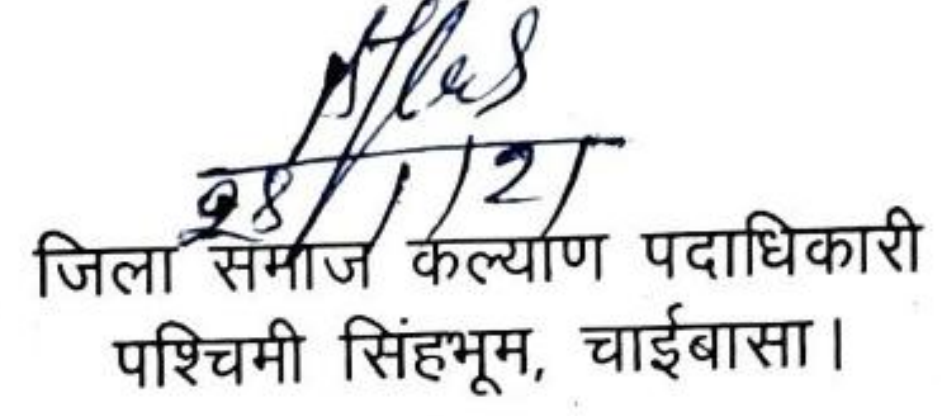 28/1/21
जिला समाज कल्याण पदाधिकारी
पश्चिमी सिंहभूम, चाईबासा।